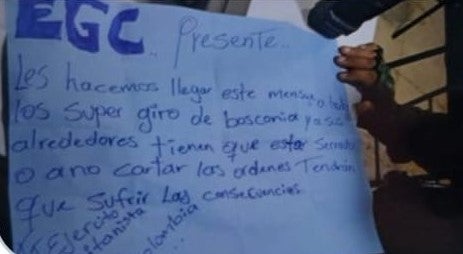 EGC.. Presente..
Les hacemos llegar este mensaje a todos
los super giro de bosconia y a sus
alrededores tienen que estar serrados
o ano cartar las ordenes Tendran
que sufrir Las consecuencias
Ejercito
itanista
olombia